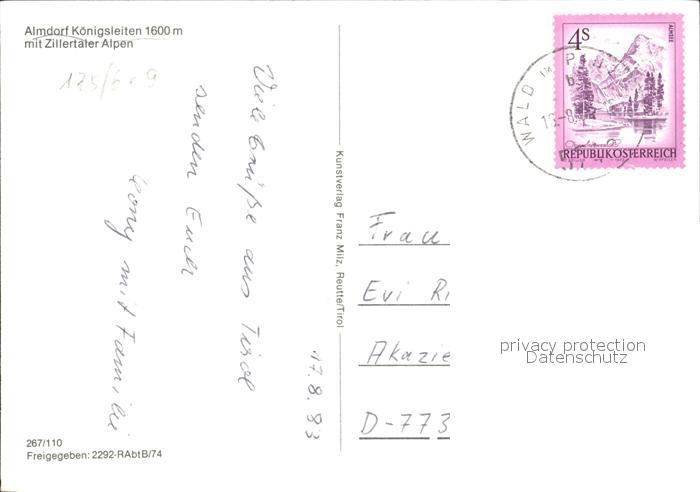 Almdorf Königsleiten 1600 m
mit Zillertaler Alpen
125/6 9
Viele Grüße aus Tirol
senden Euch
Conny mit Familie
17.8.83
267/110
Freigegeben: 2292-RAbtB/74
Kunstverlag Franz Milz, Reutte/Tirol
4S
ALMSEE
REPUBLIK ÖSTERREICH
WALD IM P
b
Frau
Evi Ri
Akazie
D-773
privacy protection
Datenschutz